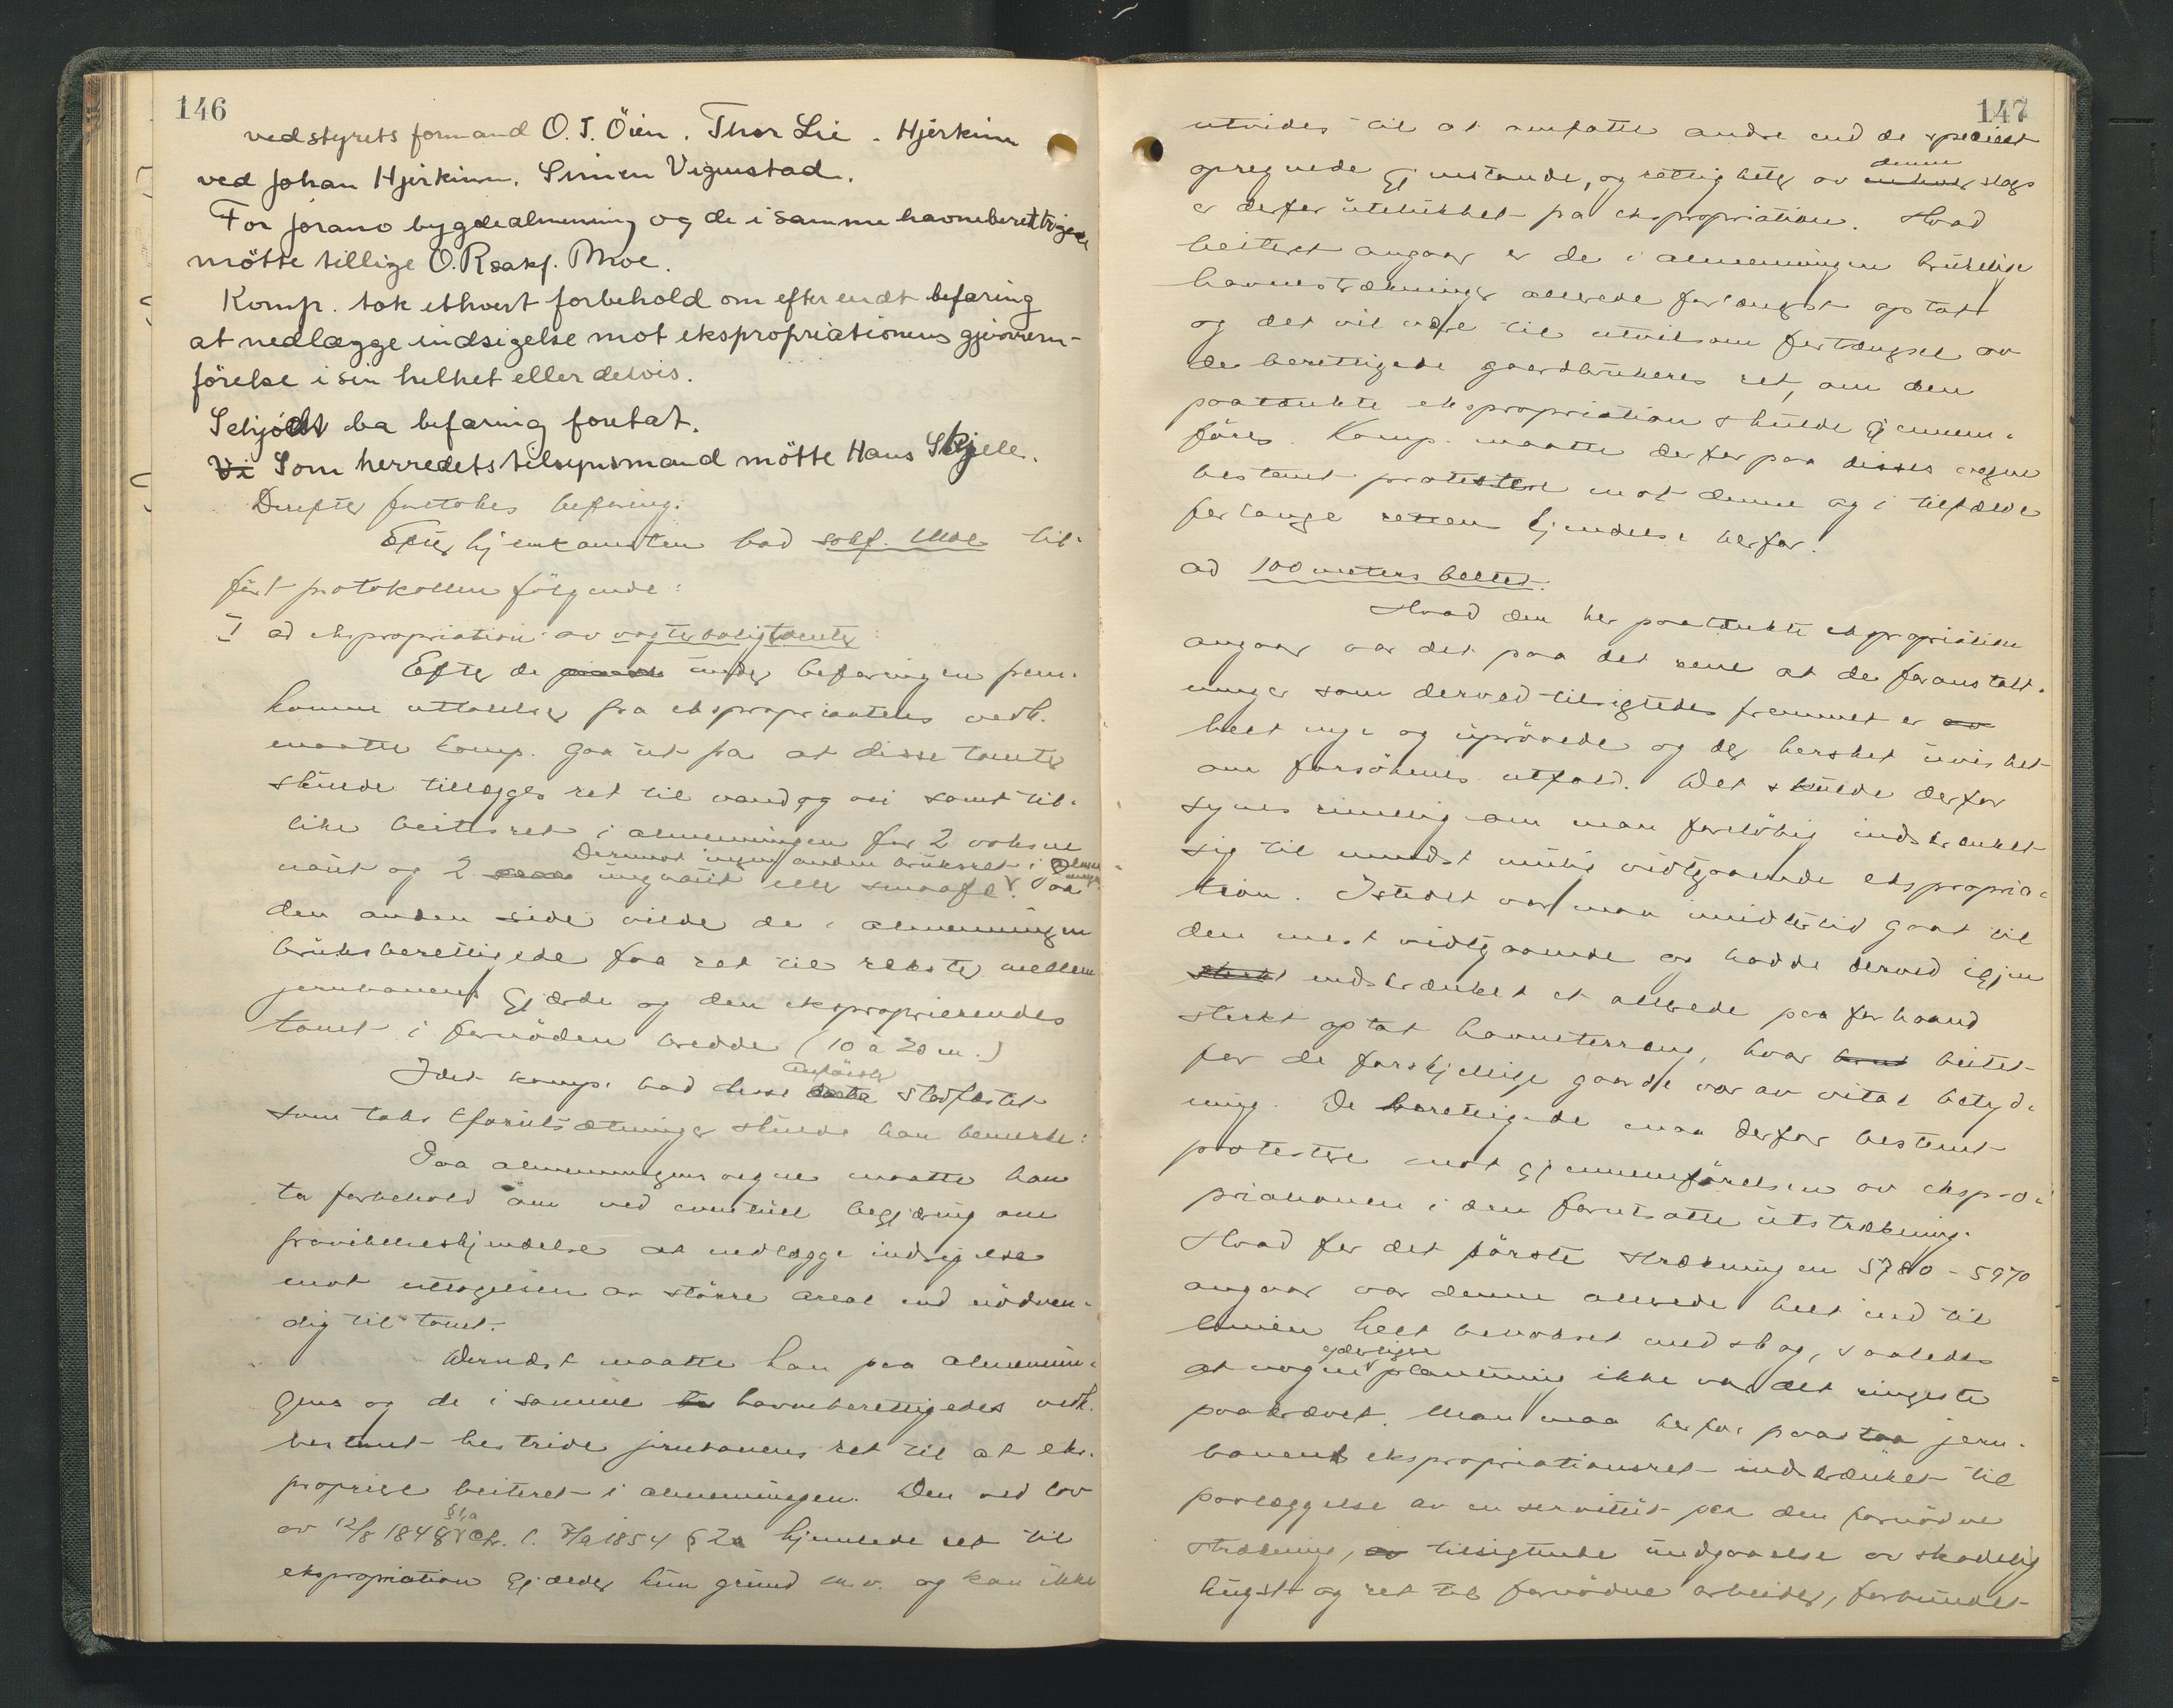 146
vedstyrets formand O. T. Öien. Thor Lie. Hjerkinn
ved Johan Hjerkinn. Simen Vigenstad.
For Joramo bygdealmenning og de i samme havneberettigede
mötte tillige O.R.sakf. Moe.
Komp. tok ethvert forbehold om efter endt befaring
at nedlægge indsigelse mot ekspropriationens gjennem-
förelse i sin helhet eller delvis.
Schjödt ba befaring foretat.
Vi Som herredets tilsynsmand mötte Hans Skjelle.
Derefter foretokes befaring.
Efter hjemkomsten bad sakf. Moe til-
fört protokollen fölgende:
I ad ekspropriation av vogterboligtomter:
Efter de under befaringen frem-
komne uttalelser fra ekspropriantens vedk.
maatte komp. gaa ut fra at disse tomter
skulde tillægges ret til vand og vei samt til-
like beitesret i almenningen for 2 voksne
Derimot ingen anden bruksret i almenningen
naut og 2 ungnaut eller smaafe. Paa
den anden side vilde de i almenningen
bruksberettigede faa ret til rekster mellem
jernbanens gjærde og den eksproprierendes
tomt i fornöden bredde (10 a 20 m.)
Idet komp. bad disse anförsler stadfæstet
som taks forutsætninger skulde han bemerke:
Paa almenningens vegne maatte han
ta forbehold om ved eventuel begjæring om
fravikelseskjendelse at nedlægge indsigelse
mot uttagelsen av större areal end nödven-
dig til tomt.
Dernæst maatte han paa almennin-
gens og de i samme havneberettigedes vedk.
bestemt bestride jernbanens ret til at eks-
propriere beiteret i almenningen. Den ved lov
av 12/8 1848 § 1,a cfr. l. 7/9 1854 § 2a hjemlede ret til
ekspropriation gjælder kun grund m.v. og kan ikke
147
utvides til at omfatte andre end de specielt
opregnede gjenstande, og rettigheter av denne slags
er derfor utelukket fra ekspropriation. Hvad
beiteret angaar er de i almenningen brukelige
havnestrækninger allerede forlængst optat
og det vil være til utvilsom fortrængsel av
de berettigede gaardbrukeres ret, om den
paatænkte ekspropriation skulde gjennem-
föres. Komp. maatte derfor paa disses vegne
bestemt protestere mot denne og i tilfælde
forlange rettens kjendelse herfor.
ad 100 meters beltet.
Hvad den her paatænkte ekspropriation
angaar var det paa det rene at de foranstalt-
ninger som derved tilsigtedes fremmet er
helt nye og uprövede og der hersket uvishet
om forsökenes utfald. Det skulde derfor
synes rimelig om man forelöbig indskrænket
sig til mindst mulig vidtgaaende ekspropria-
tion. Istedet var man imidlertid gaat til
den mest vidtgaaende og hadde derved igjen
sterkt indskrænket et allerede paa forhaand
sterkt optat havneterræng, hvor beitet
for de forskjellige gaarde var av vital betyd-
ning. De berettigede maa derfor bestemt
protestere mot gjennemförelsen av ekspro-
priationen i den forutsatte utstrækning.
Hvad for det förste strækningen 5780 - 5970
angaar var denne allerede helt ind til
linien helt bevokset med skog, saaledes
at nogen yderligere plantning ikke var det ringeste
paakrævet. Man maa herfor paastaa jern-
banens ekspropriationsret indskrænket til
paalæggelse av en servitut paa den fornödne
strækning, tilsigtende undgaaelse av skadelig
hugst og ret til fornödne arbeider, forbundet